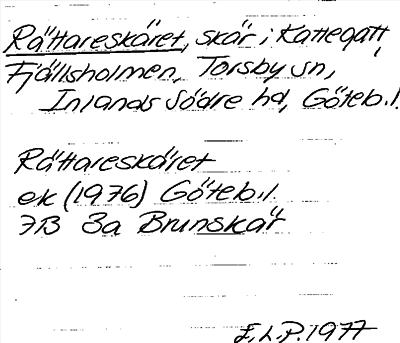 Rättareskäret, skär i Kattegatt,
Fjällsholmen, Torsby sn,
Inlands Södre hd, Göteb.l.
Rättareskäret
ek (1976) Göteb.l.
7B 8a Brunskär
E.L.P. 1977